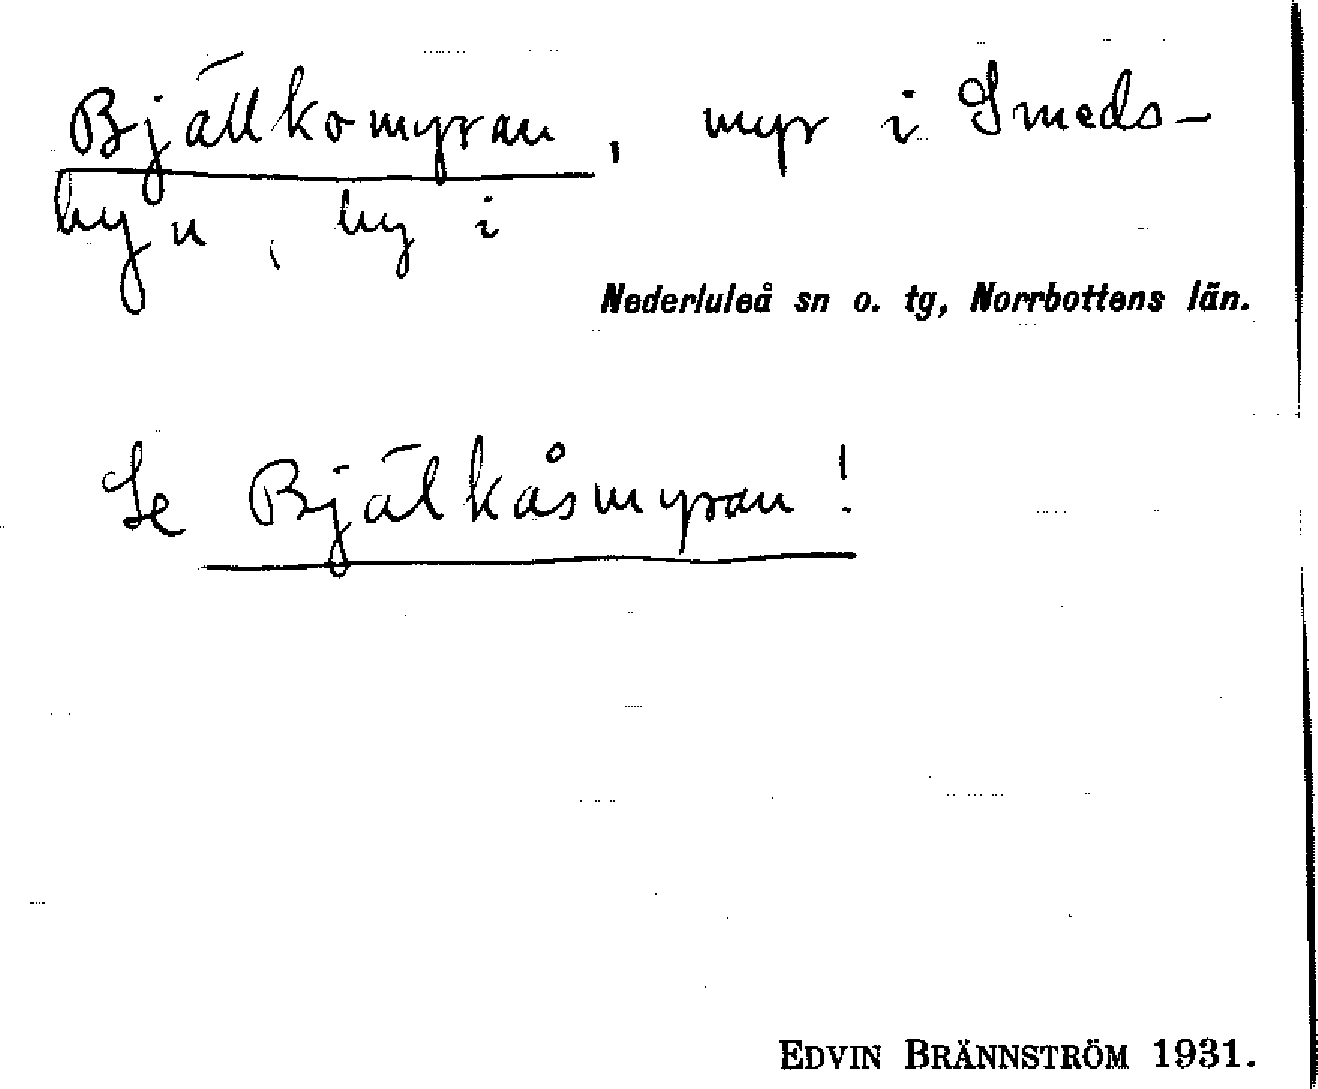 Bjällkomyran, myr i Smeds-
byn, by i
Nederluleå sn o. tg, Norrbottens län.
Se Bjälkåsmyran!
EDVIN BRÄNNSTRÖM 1931.